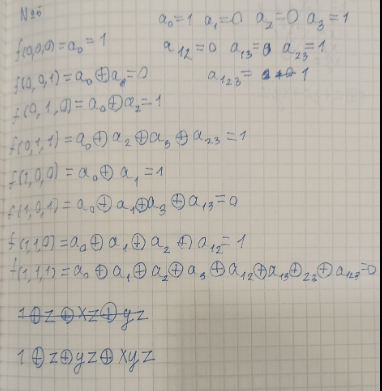 №6
a₀=1 a₁=0 a₂=0 a₃=1
f(0,0,0)=a₀=1
a₁₂=0 a₁₃=0 a₂₃=1
f(0,0,1)=a₀⊕a₃=0
a₁₂₃= 1
f(0,1,0)=a₀⊕a₂=1
f(0,1,1)=a₀⊕a₂⊕a₃⊕a₂₃=1
f(1,0,0)=a₀⊕a₁=1
f(1,0,1)=a₀⊕a₁⊕a₃⊕a₁₃=0
f(1,1,0)=a₀⊕a₁⊕a₂⊕a₁₂=1
f(1,1,1)=a₀⊕a₁⊕a₂⊕a₃⊕a₁₂⊕a₁₃⊕₂₃⊕a₁₂₃=0
1⊕z⊕xz⊕yz
1⊕z⊕yz⊕xyz